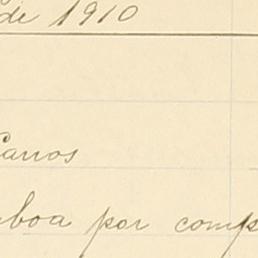 de 1910
Carros
boa por comp